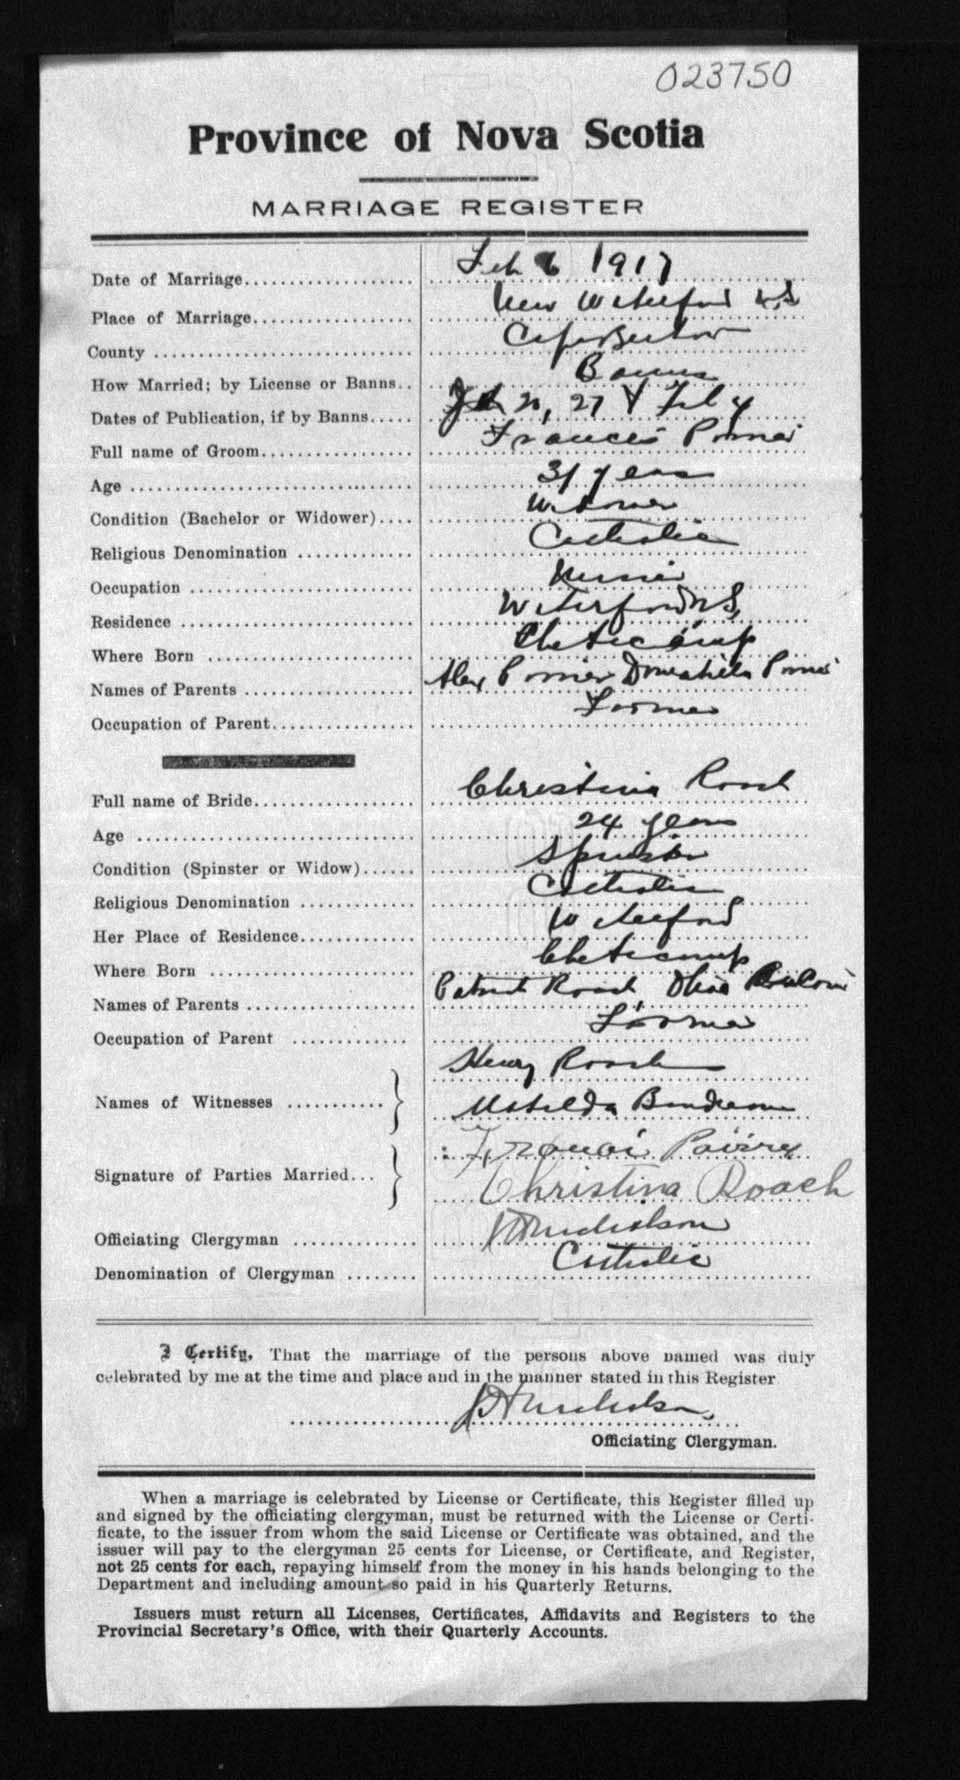 023750
Province of Nova Scotia
MARRIAGE REGISTER
Date of Marriage Feb 6 1917
Place of Marriage New Waterford N.S
County Cape Breton
How Married; by License or Banns Banns
Dates of Publication, if by Banns 27 & Feb 4
Full name of Groom Francis Poirier
Age 31 years
Condition (Bachelor or Widower) Widower
Religious Denomination Catholic
Occupation
Residence Waterford N S,
Where Born Cheticamp
Names of Parents Alex Poirier
Occupation of Parent Farmer
Full name of Bride Christina Roach
Age 24 years
Condition (Spinster or Widow) Spinster
Religious Denomination Catholic
Her Place of Residence Waterford
Where Born Cheticamp
Names of Parents Patrick Roach
Occupation of Parent Farmer
Names of Witnesses Henry Roach
Matilda Boudreau
Signature of Parties Married
Christina Roach
Officiating Clergyman Nicholson
Denomination of Clergyman Catholic
I Certify, That the marriage of the persons above named was duly
celebrated by me at the time and place and in the manner stated in this Register
Nicholson,
Officiating Clergyman.
When a marriage is celebrated by License or Certificate, this Register filled up
and signed by the officiating clergyman, must be returned with the License or Certi-
ficate, to the issuer from whom the said License or Certificate was obtained, and the
issuer will pay to the clergyman 25 cents for License, or Certificate, and Register,
not 25 cents for each, repaying himself from the money in his hands belonging to the
Department and including amount so paid in his Quarterly Returns.
Issuers must return all Licenses, Certificates, Affidavits and Registers to the
Provincial Secretary's Office, with their Quarterly Accounts.